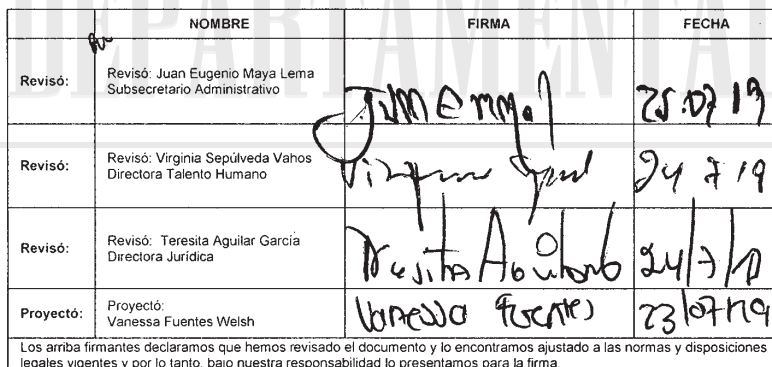 DEPARTAMENTAL
NOMBRE FIRMA FECHA
Revisó: Revisó: Juan Eugenio Maya Lema
Subsecretario Administrativo
25.07 19
Revisó: Revisó: Virginia Sepúlveda Vahos
Directora Talento Humano
24 7 19
Revisó: Revisó: Teresita Aguilar García
Directora Jurídica
Teresita Aguilar 24/7/19
Proyectó: Proyectó:
Vanessa Fuentes Welsh
Vanessa Fuentes 23/07/19
Los arriba firmantes declaramos que hemos revisado el documento y lo encontramos ajustado a las normas y disposiciones
legales vigentes y por lo tanto, bajo nuestra responsabilidad lo presentamos para la firma.